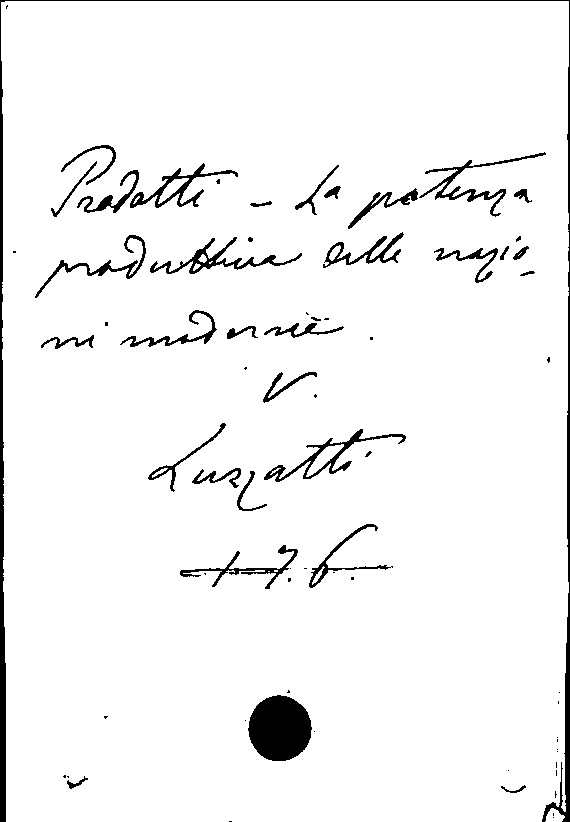 Prodotti - La potenza
produttiva delle nazio-
ni moderne.
V.
Luzzatti
1.7.6.